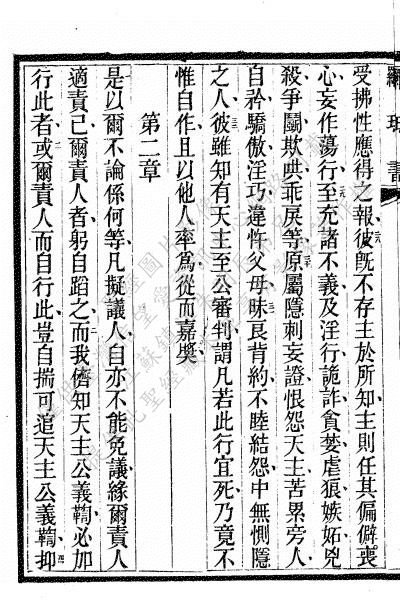 受拂性應得之報彼旣不存主於所知主則任其偏僻喪
心妄作蕩行至充諸不義及淫行詭詐貪婪虐狠嫉妬兇
殺爭鬭欺哄乖戾等原屬隱刺妄證恨怨天主苦累旁人
自矜驕傲淫巧違忤父母昧良背約不睦結怨中無惻隱
之人彼雖知有天主至公審判謂凡若此行宜死乃竟不
惟自作且以他人率爲從而嘉奬
第二章
是以爾不論係何等凡擬議人自亦不能免議緣爾責人
適責己爾責人者躬自蹈之而我儕知天主公義鞫必加
行此者或爾責人而自行此豈自揣可逭天主公義鞫抑